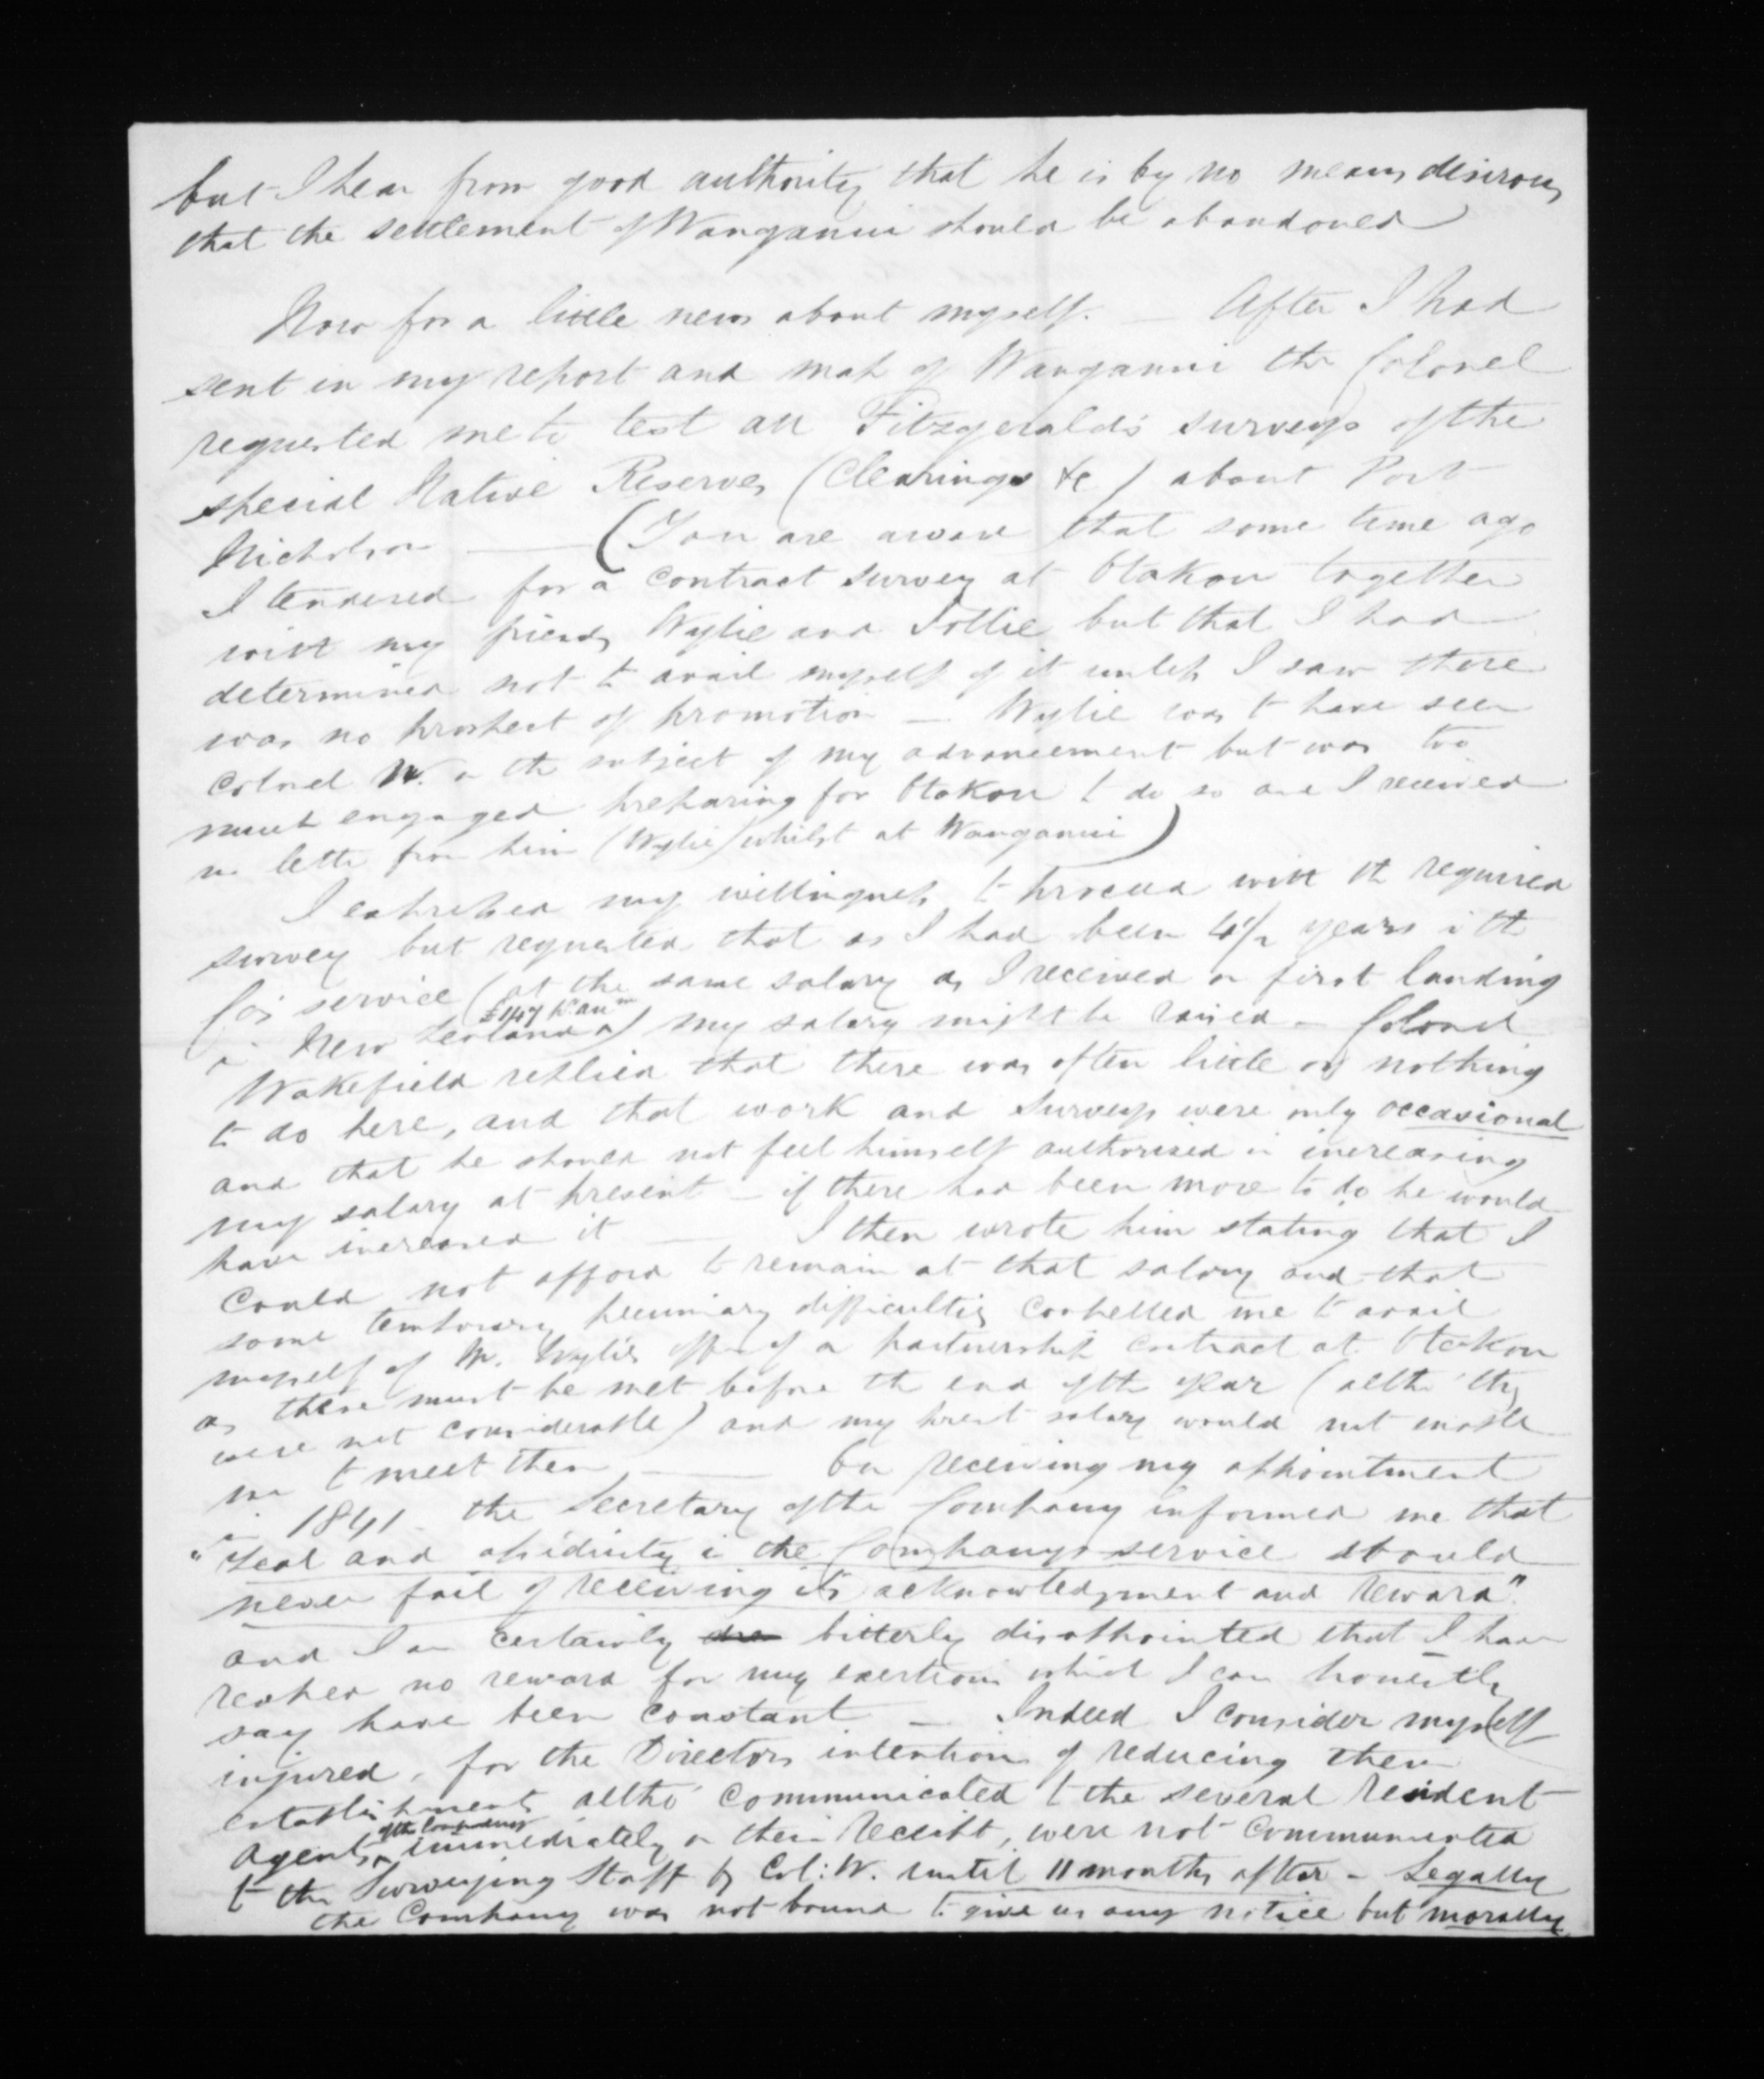 but I hear from good authority that he is by no means desirous
that the settlement of Wanganui should be abandoned
Now for a little news about myself. — After I had
sent in my report and map of Wanganui the Colonel
requested me to test all Fitzgerald's surveys of the
special Native Reserves (Clearings &c) about Port
Nicholson — (You are aware that some time ago
I tendered for a contract survey at Otakou together
with my friends Wylie and Jollie but that I had
determined not to avail myself of it unless I saw there
was no prospect of promotion — Wylie was to have seen
Colonel W. on the subject of my advancement but was too
much engaged preparing for Otakou to do so and I received
no letter from him (Wylie) whilst at Wanganui)
I expressed my willingness to proceed with the required
survey but requested that as I had been 4½ years in the
Co's service (at the same salary as I received on first landing
in New Zealand £147 pr. ann) my salary might be raised — Colonel
Wakefield replied that there was often little or nothing
to do here, and that work and surveys were only occasional
and that he should not feel himself authorised in increasing
my salary at present — if there had been more to do he would
have increased it — I then wrote him stating that I
could not afford to remain at that salary and that
some temporary pecuniary difficulties compelled me to avail
myself of Mr. Wylie's offer of a partnership contract at Otakou
as these must be met before the end of the year (altho' they
were not considerable) and my prest salary would not enable
me to meet them — On receiving my appointment
in 1841 the Secretary of the Company informed me that
"Zeal and assiduity in the Company's service should
never fail of receiving its acknowledgment and reward".
and I am certainly bitterly disappointed that I have
reaped no reward for my exertions which I can honestly
say have been constant — Indeed I consider myself
injured, for the Directors intentions of reducing their
establishments altho' communicated to the several resident
agents of the Company immediately on their receipt, were not communicated
to the Surveying Staff by Col: W. until 11 months after — Legally
the Company was not bound to give us any notice but morally